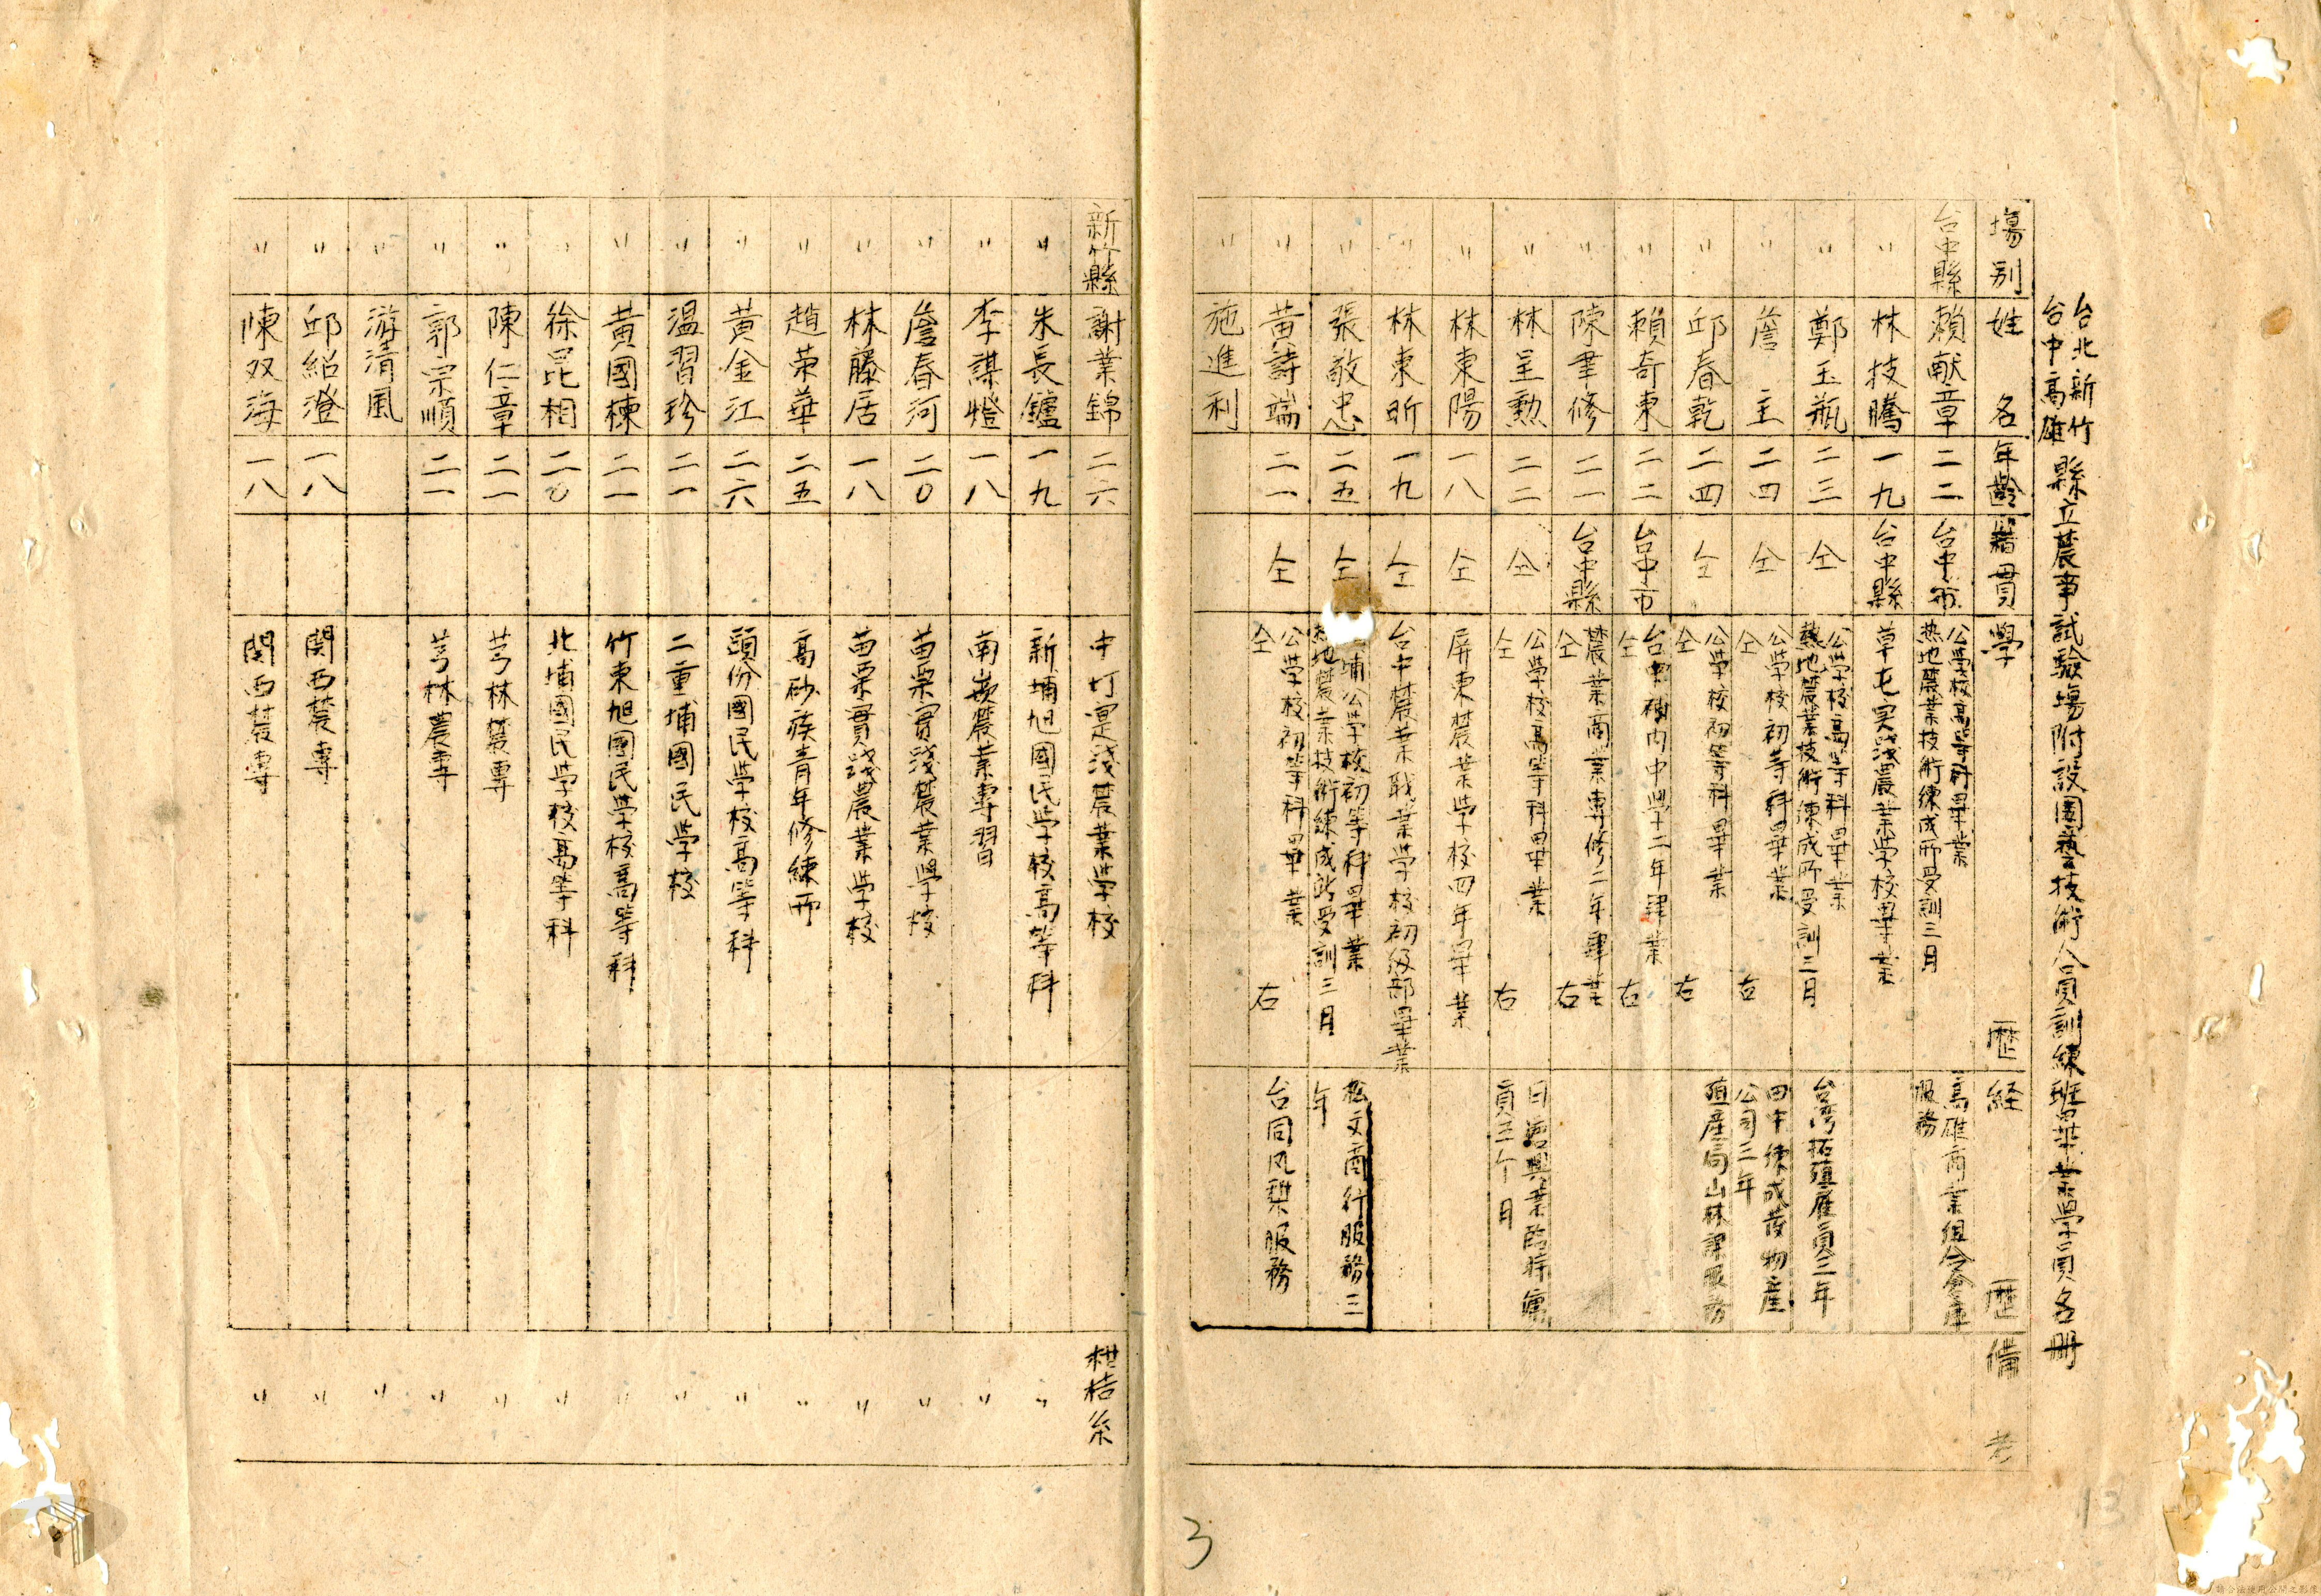 台北新竹
台中高雄
縣立農事試驗場附設園藝技術人員訓練班畢業學員名冊
場別 姓名 年齡 籍貫 學歷 経歷 備考
台中縣 賴献章 二二 台中市 公學校高等科畢業 热地農業技術練成所受訓三月 高雄商業組合倉庫服務
〃 林技騰 一九 台中縣 草屯実践農業学校畢業
〃 鄭玉瓶 二三 仝 公学校高等科畢業 熱地農業技術練成所受訓三月 台湾拓殖雇員三年
〃 詹主 二四 仝 公学校初等科畢業 仝右 田中練成荗物産公司三年
〃 邱春乾 二四 仝 公学校初等科畢業 仝右 殖産局山林課服務
〃 賴奇東 二二 台中市 台中州内中学二年肄業 仝右
〃 陳聿修 二一 台中縣 農業商業専修二年肄業 仝右
〃 林呈勲 二二 仝 公学校高等科畢業 仝右 興業臨時傭員五个月
〃 林東陽 一八 仝 屏東農業学校四年畢業
〃 林東昕 一九 仝 台中農業职業学校初级部畢業
〃 張敬忠 二五 仝 埔公学校初等科畢業 热地農業技術練成所受訓三月 松文商行服務三年
〃 黃詩端 二一 仝 公学校初等科畢業 仝右 台同凤梨服務
〃 施進利
新竹縣 謝業錦 二六 中圢寔淺農業学校 柑桔系
〃 朱長鑪 一九 新埔旭國民学校高等科 〃
〃 李謀燈 一八 南崁農業專習 〃
〃 詹春河 二〇 苗栗實淺農業學校 〃
〃 林藤居 一八 苗栗實踐農業学校 〃
〃 趙荣華 二五 高砂族青年修練所 〃
〃 黃金江 二六 頭份國民学校高等科 〃
〃 温習珍 二一 二重埔國民学校 〃
〃 黃國棟 二一 竹東旭國民学校高等科 〃
〃 徐昆相 二〇 北埔國民学校高等科 〃
〃 陳仁章 二一 芎林農專 〃
〃 郭宗順 二一 芎林農専 〃
〃 游清風 〃
〃 邱紹澄 一八 関西農專 〃
〃 陳双海 一八 関西農專 〃
3
13